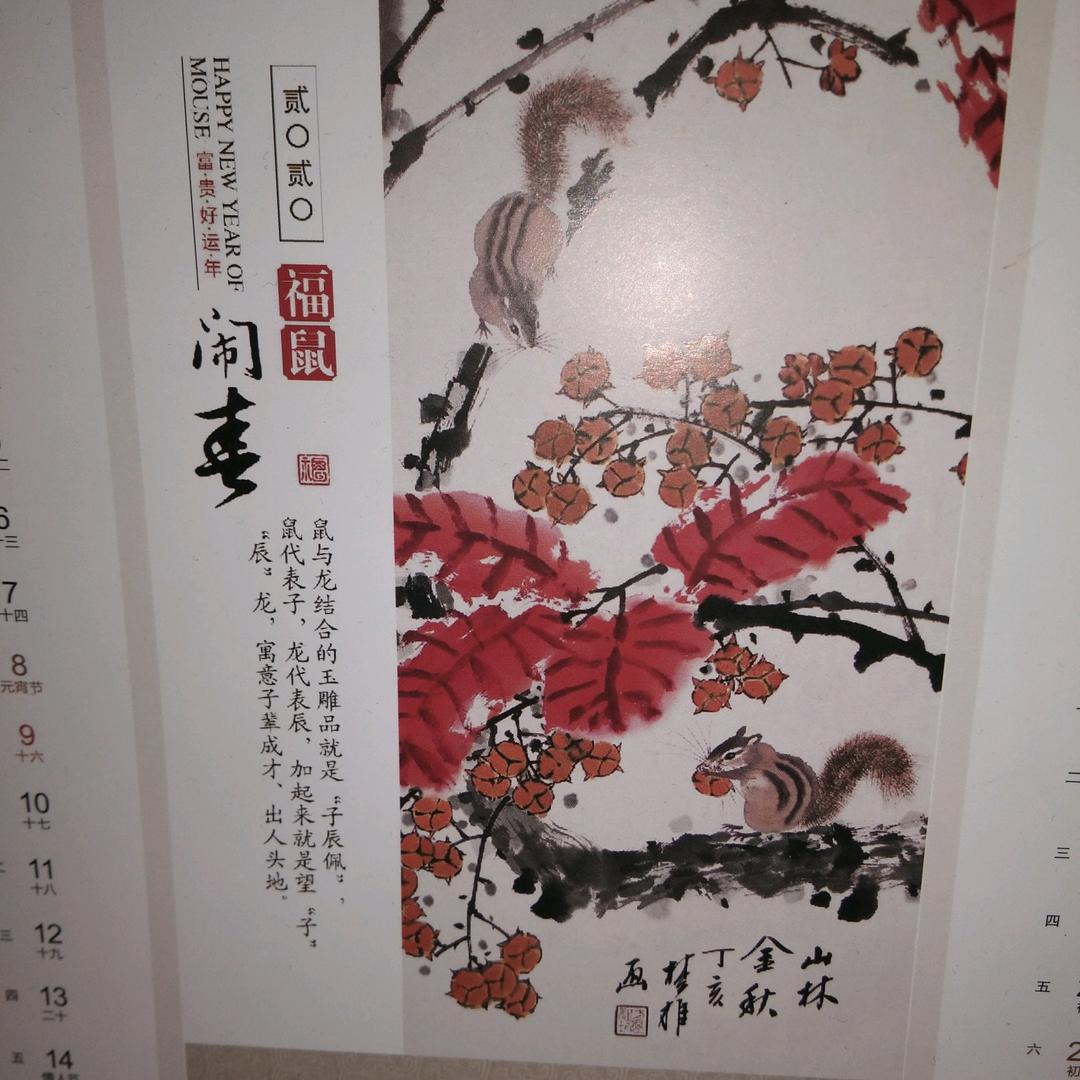 贰〇贰〇
HAPPY NEW YEAR OF
MOUSE 富·贵·好·运·年
福鼠
闹春
鼠与龙结合的玉雕品就是“子辰佩”，
鼠代表子，龙代表辰，加起来就是望“子”
“辰”龙，寓意子辈成才、出人头地。
山林
金秋
丁亥
楚雄
画
6
十三
7
十四
8
元宵节
9
十六
10
十七
11
十八
三
12
十九
四
13
二十
五
14
情人节
二
三
四
五
六
2
初